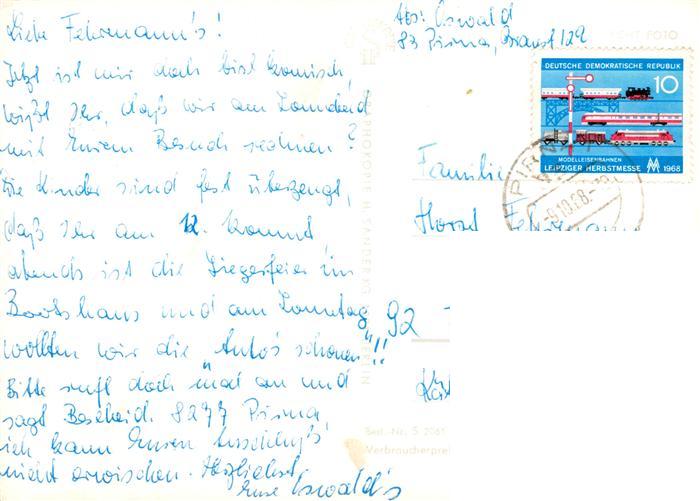 Liebe Fehrmann's!
Jetzt ist mir doch bissl komisch,
wißt Ihr, daß wir am Sonnabend
mit Eurem Besuch rechnen?
Die Kinder sind fest überzeugt,
daß Ihr am 12. kommt
abends ist die Siegesfeier im
Bootshaus und am Sonntag
wollten wir die "Auto's schonen"!!
Bitte ruft doch mal an und
sagt Bescheid. 8277 Pirna,
ich kann Euren
nicht erwischen. Herzlichst
Eure Oswald's
Abs: Oswald
83 Pirna, 122
ECHT FOTO
DEUTSCHE DEMOKRATISCHE REPUBLIK
10
MODELLEISENBAHNEN
LEIPZIGER HERBSTMESSE 1968
PIRNA
-9.10.68.-
Familie
Horst Fehrmann
92
H. SANDER KG
Best.-Nr. S 2061
Verbraucherprei